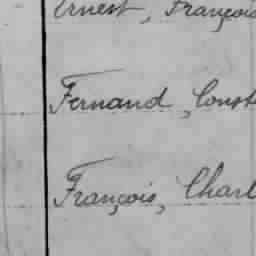 Ernest, François
Fernand, Const
François, Charl